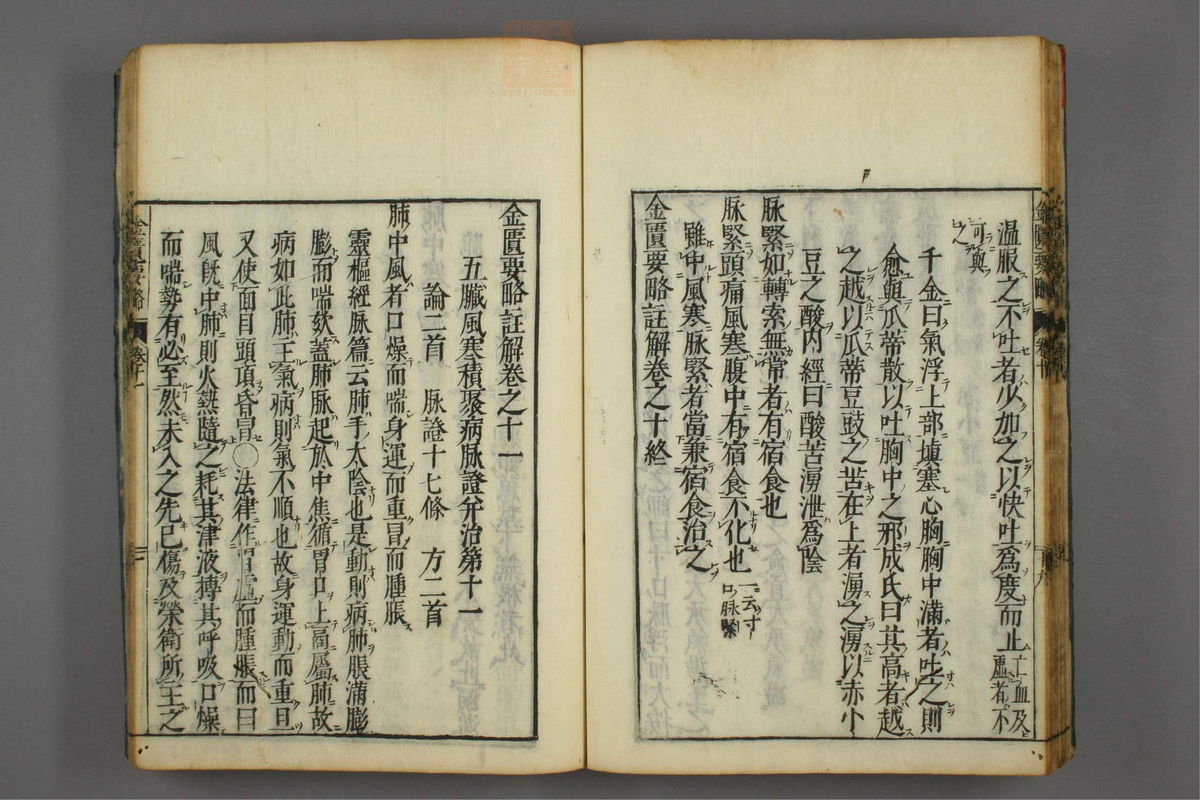 温服之不吐者少加之以快吐爲度而止亡血及虛者不
可與之
千金曰氣浮上部塡塞心胸胸中滿者吐之則
愈與瓜蒂散以吐胸中之邪成氏曰其高者越
之越以瓜蒂豆豉之苦在上者湧之湧以赤小
豆之酸內經曰酸苦湧泄爲陰
脉緊如轉索無常者有宿食也
脉緊頭痛風寒腹中有宿食不化也一云寸口脉緊
雖中風寒脉緊者當兼宿食治之
金匱要略註解卷之十終
金匱要略註解卷之十一
五臟風寒積聚病脉證并治第十一
論二首 脉證十七條 方二首
肺中風者口燥而喘身運而重冒而腫脹
靈樞經脉篇云肺手太陰也是動則病肺脹滿膨
膨而喘欬蓋肺脉起於中焦循胃口上高屬肺故
病如此肺主氣氣病則氣不順也故身運動而重且
又使面目頭項昏冒〇法律作冒虛而腫脹而曰
風旣中肺則火熱隨之耗其津液搏其呼吸口燥
而喘勢有必至然未入之先已傷及榮衛所主之
金匱要略 卷十一